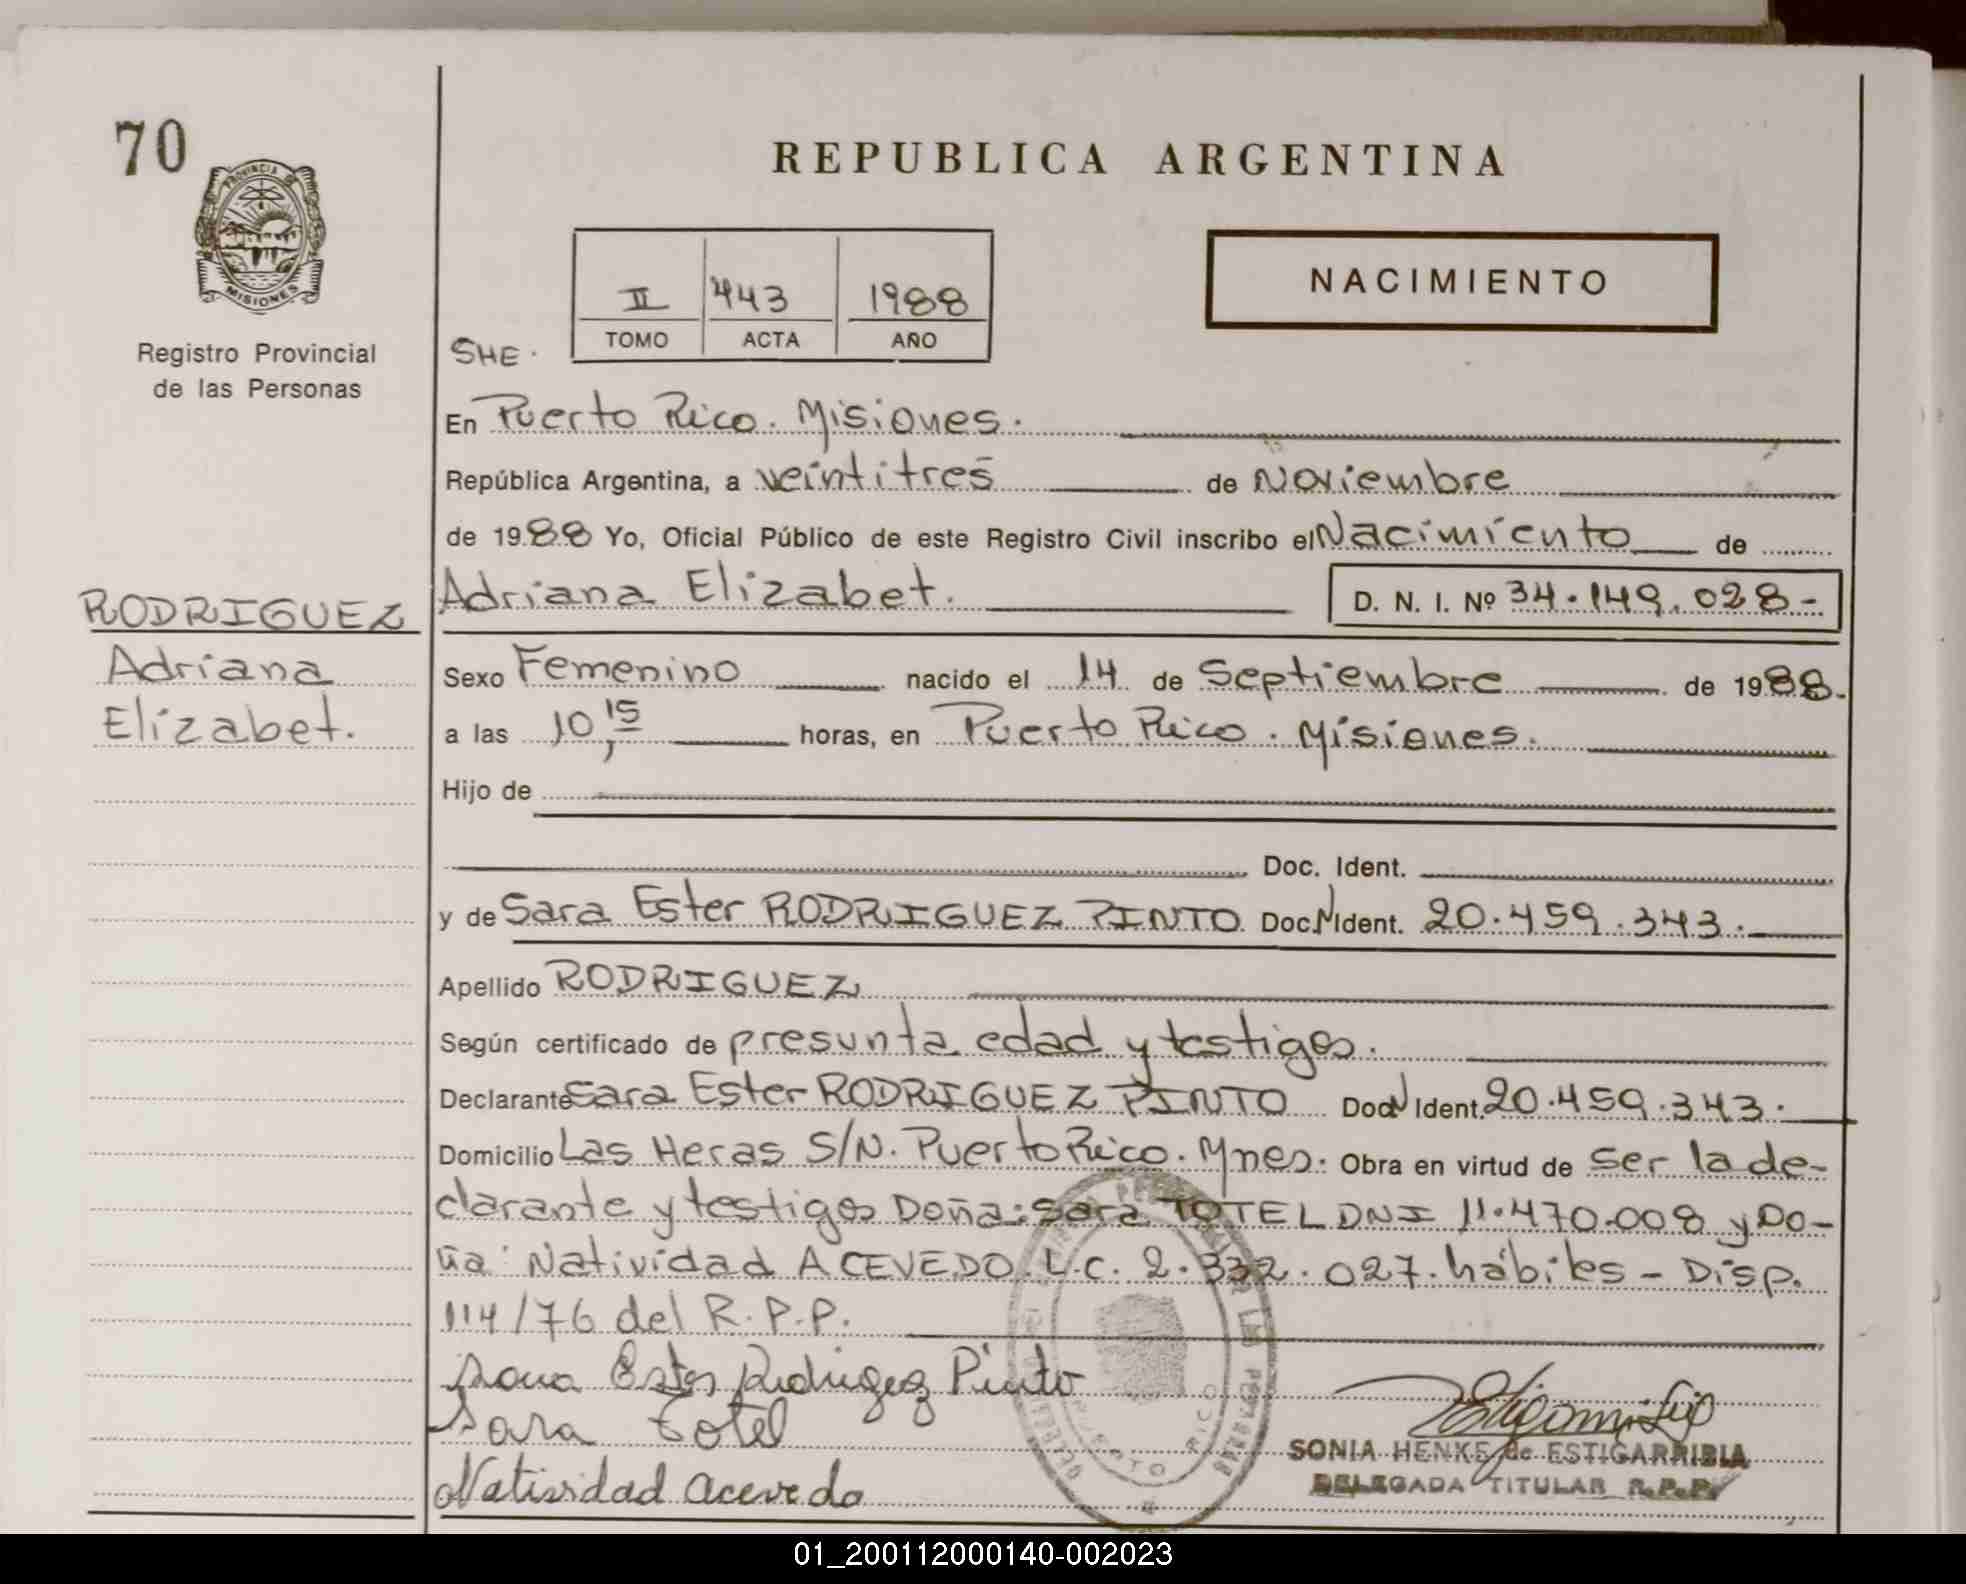 70
REPUBLICA ARGENTINA
PROVINCIA DE
MISIONES
NACIMIENTO
II 443 1988
TOMO ACTA AÑO
Registro Provincial
de las Personas
SHE.
En Puerto Rico. Misiones.
República Argentina, a veintitres de Noviembre
de 1988 Yo, Oficial Público de este Registro Civil inscribo el Nacimiento de
RODRIGUEZ
Adriana
Elizabet.
Adriana Elizabet. D. N. I. Nº 34.149.028-
Sexo Femenino nacido el 14 de Septiembre de 1988.
a las 10,15 horas, en Puerto Rico. Misiones.
Hijo de
Doc. Ident.
y de Sara Ester RODRIGUEZ PINTO Doc.N Ident. 20.459.343.
Apellido RODRIGUEZ
Según certificado de presunta edad y testigos.
Declarante Sara Ester RODRIGUEZ PINTO Doc N Ident. 20.459.343.
Domicilio Las Heras S/N. Puerto Rico. Mnes. Obra en virtud de ser la de-
clarante y testigos Doña: Sara TOTEL DNI 11.470.008 y Do-
ña: Natividad ACEVEDO. L.C. 2.332.027. hábiles - Disp.
114/76 del R.P.P.
Sara Ester Rodriguez Pinto
Sara Totel
Natividad Acevedo
PUERTO RICO
SONIA HENKE de ESTIGARRIBIA
DELEGADA TITULAR R.P.P.
01_200112000140-002023